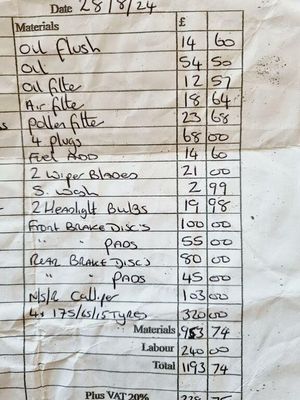 Date 28/8/24
Materials £
Oil flush 14 60
Oil 54 50
Oil filte 12 57
Air filte 18 64
Pollen filter 23 68
4 plugs 68 00
Fuel ADD 14 60
2 Wiper BLADES 21 00
S. Wash 2 99
2 Headlight Bulbs 19 98
Front BRAKE DISC'S 100 00
" " PADS 55 00
Rear BRAKE DISC'S 80 00
" " PADS 45 00
N/S/R Calliper 103 00
4x 175/65/15 TYRES 320 00
Materials 953 74
Labour 240 00
Total 1193 74
Plus VAT 20%